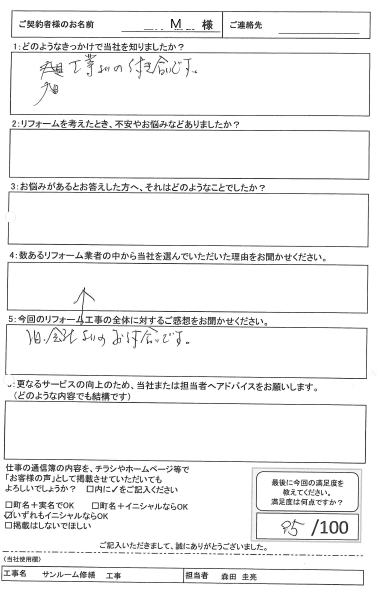 ご契約者様のお名前 M 様 ご連絡先
1:どのようなきっかけで当社を知りましたか？
工事 の付き合いです。
2:リフォームを考えたとき、不安やお悩みなどありましたか？
3:お悩みがあるとお答えした方へ、それはどのようなことでしたか？
4:数あるリフォーム業者の中から当社を選んでいただいた理由をお聞かせください。
5:今回のリフォーム工事の全体に対するご感想をお聞かせください。
旧、会社 のお付合いです。
:更なるサービスの向上のため、当社または担当者へアドバイスをお願いします。
(どのような内容でも結構です)
仕事の通信簿の内容を、チラシやホームページ等で
「お客様の声」として掲載させていただいても
よろしいでしょうか？ □内に✓をご記入ください
□町名＋実名でOK □町名＋イニシャルならOK
☑いずれもイニシャルならOK
□掲載はしないでほしい
最後に今回の満足度を
教えてください。
満足度は何点ですか？
95/100
ご記入いただきまして、誠にありがとうございました。
(当社使用欄)
工事名 サンルーム修繕 工事 担当者 森田 圭亮